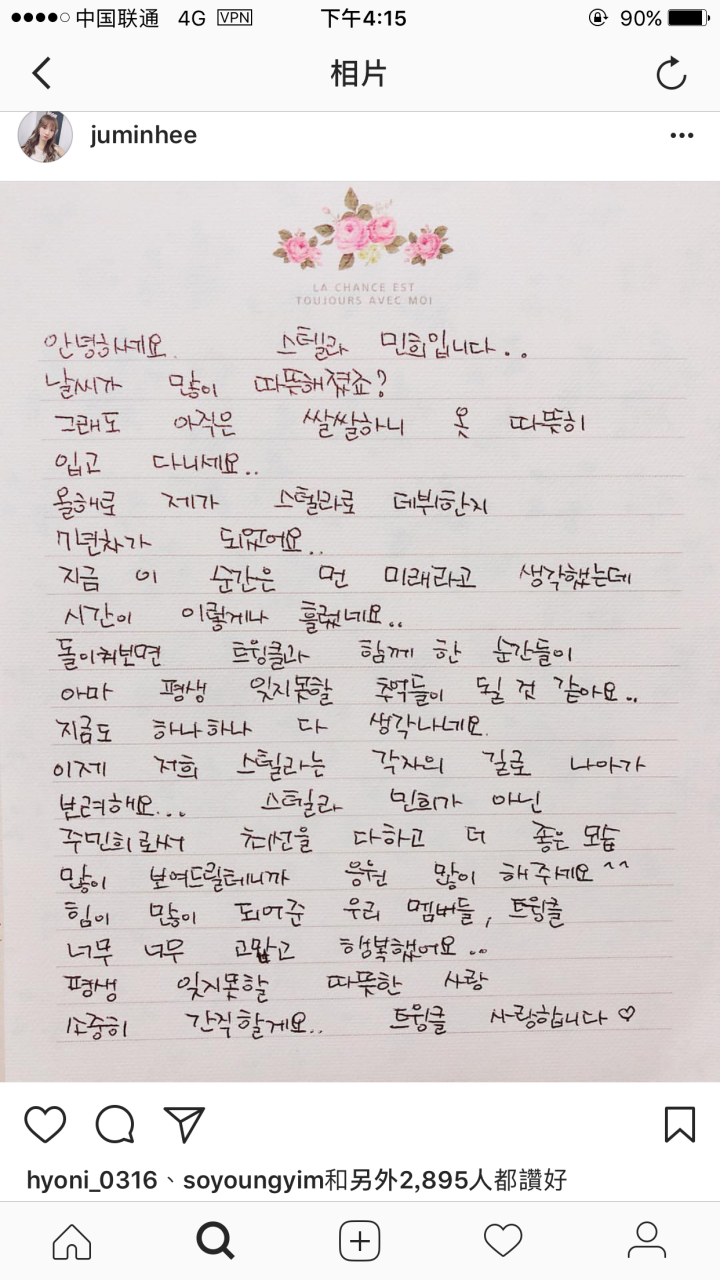 中国联通 4G VPN 下午4:15 90%
相片
juminhee
LA CHANCE EST
TOUJOURS AVEC MOI
안녕하세요. 스텔라 민희입니다..
날씨가 많이 따뜻해졌죠?
그래도 아직은 쌀쌀하니 옷 따뜻히
입고 다니세요..
올해로 제가 스텔라로 데뷔한지
7년차가 되었어요..
지금 이 순간은 먼 미래라고 생각했는데
시간이 이렇게나 흘렀네요..
돌이켜보면 트윙클과 함께 한 순간들이
아마 평생 잊지못할 추억들이 될 것 같아요..
지금도 하나하나 다 생각나네요.
이제 저희 스텔라는 각자의 길로 나아가
보려해요... 스텔라 민희가 아닌
주민희로써 최선을 다하고 더 좋은 모습
많이 보여드릴테니까 응원 많이 해주세요^^
힘이 많이 되어준 우리 멤버들, 트윙클
너무 너무 고맙고 행복했어요..
평생 잊지못할 따뜻한 사랑
소중히 간직할게요.. 트윙클 사랑합니다♡
hyoni_0316、soyoungyim和另外2,895人都讚好